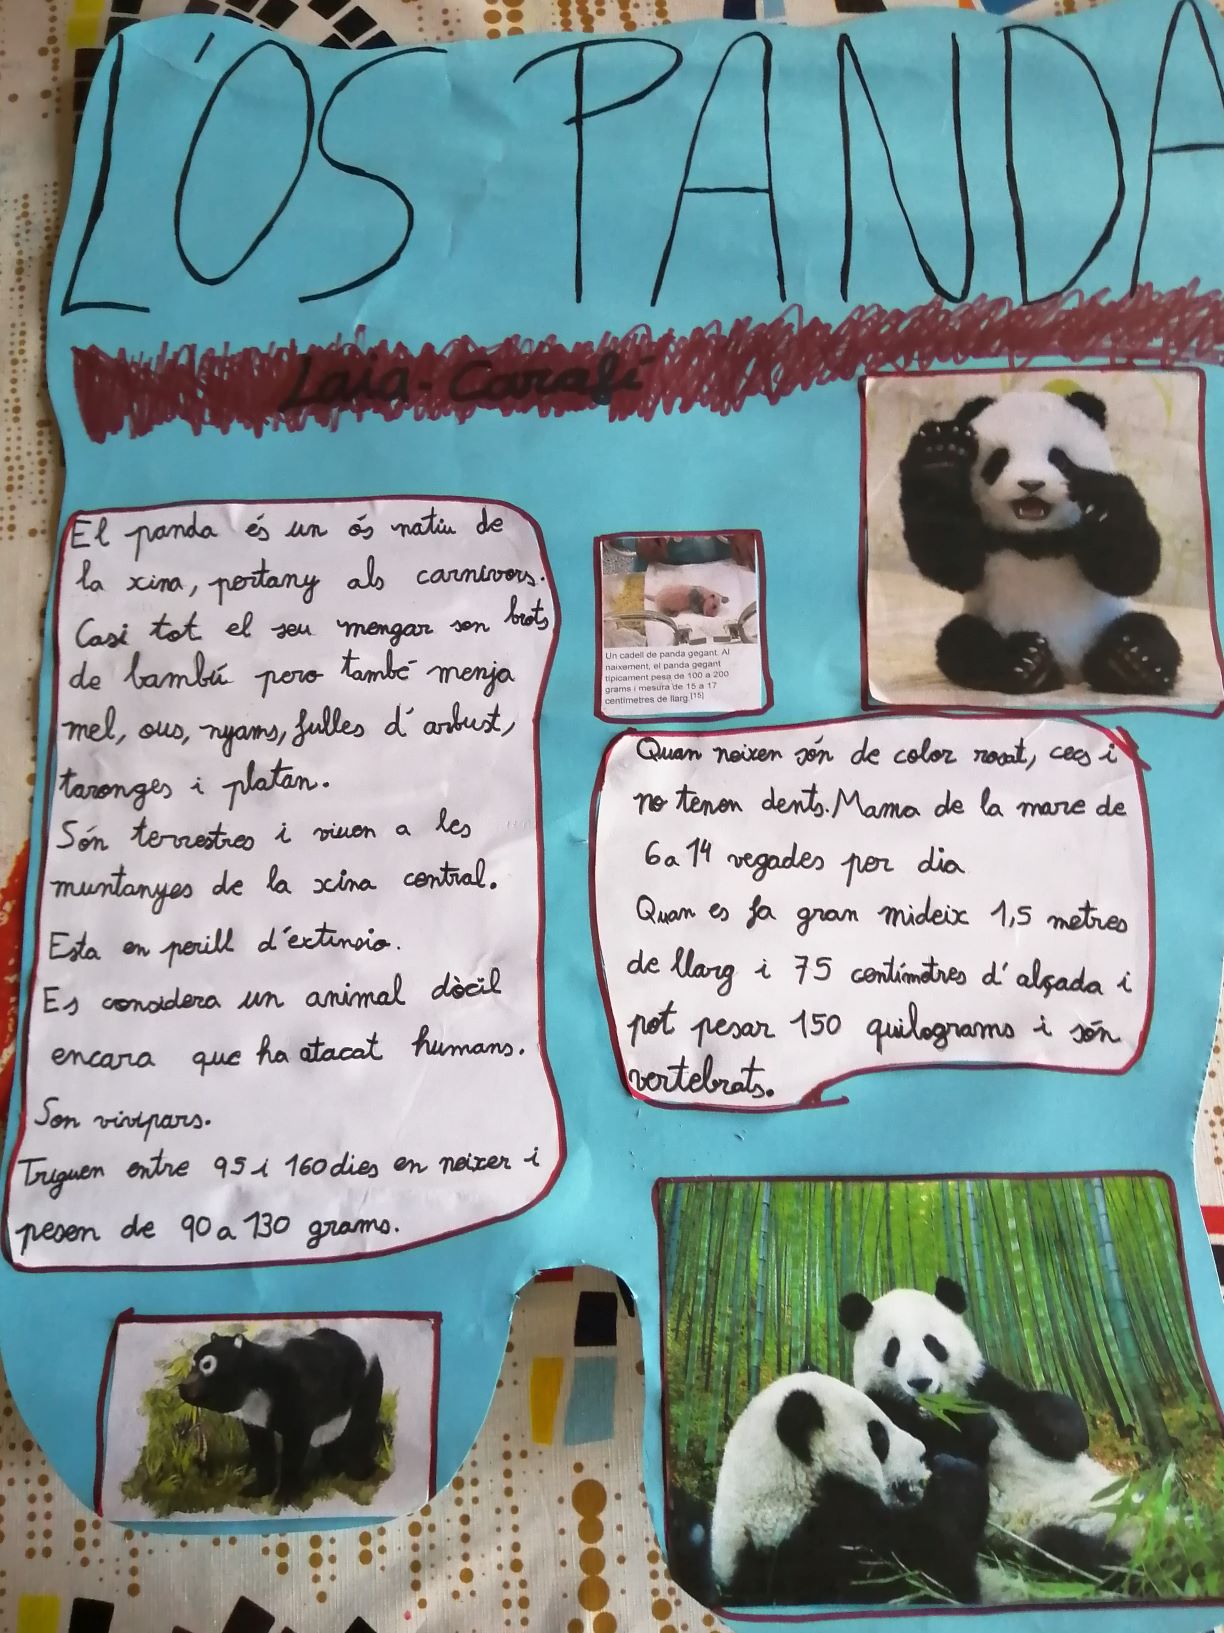 L'OS PANDA
Laia-Carafí
El panda és un ós natiu de
la xina, pertany als carnívors.
Casi tot el seu mengar son brots
de bambú pero també menja
mel, ous, nyams, fulles d'arbust,
taronges i platan.
Són terrestres i viuen a les
muntanyes de la xina central.
Esta en perill d'extinsio.
Es considera un animal dòcil
encara que ha atacat humans.
Son vivipars.
Triguen entre 95 i 160 dies en neixer i
pesen de 90 a 130 grams.
Un cadell de panda gegant. Al
naixement, el panda gegant
típicament pesa de 100 a 200
grams i mesura de 15 a 17
centímetres de llarg.[15]
Quan neixen són de color rosat, cecs i
no tenen dents. Mama de la mare de
6 a 14 vegades per dia
Quan es fa gran mideix 1,5 metres
de llarg i 75 centímetres d'alçada i
pot pesar 150 quilograms i són
vertebrats.